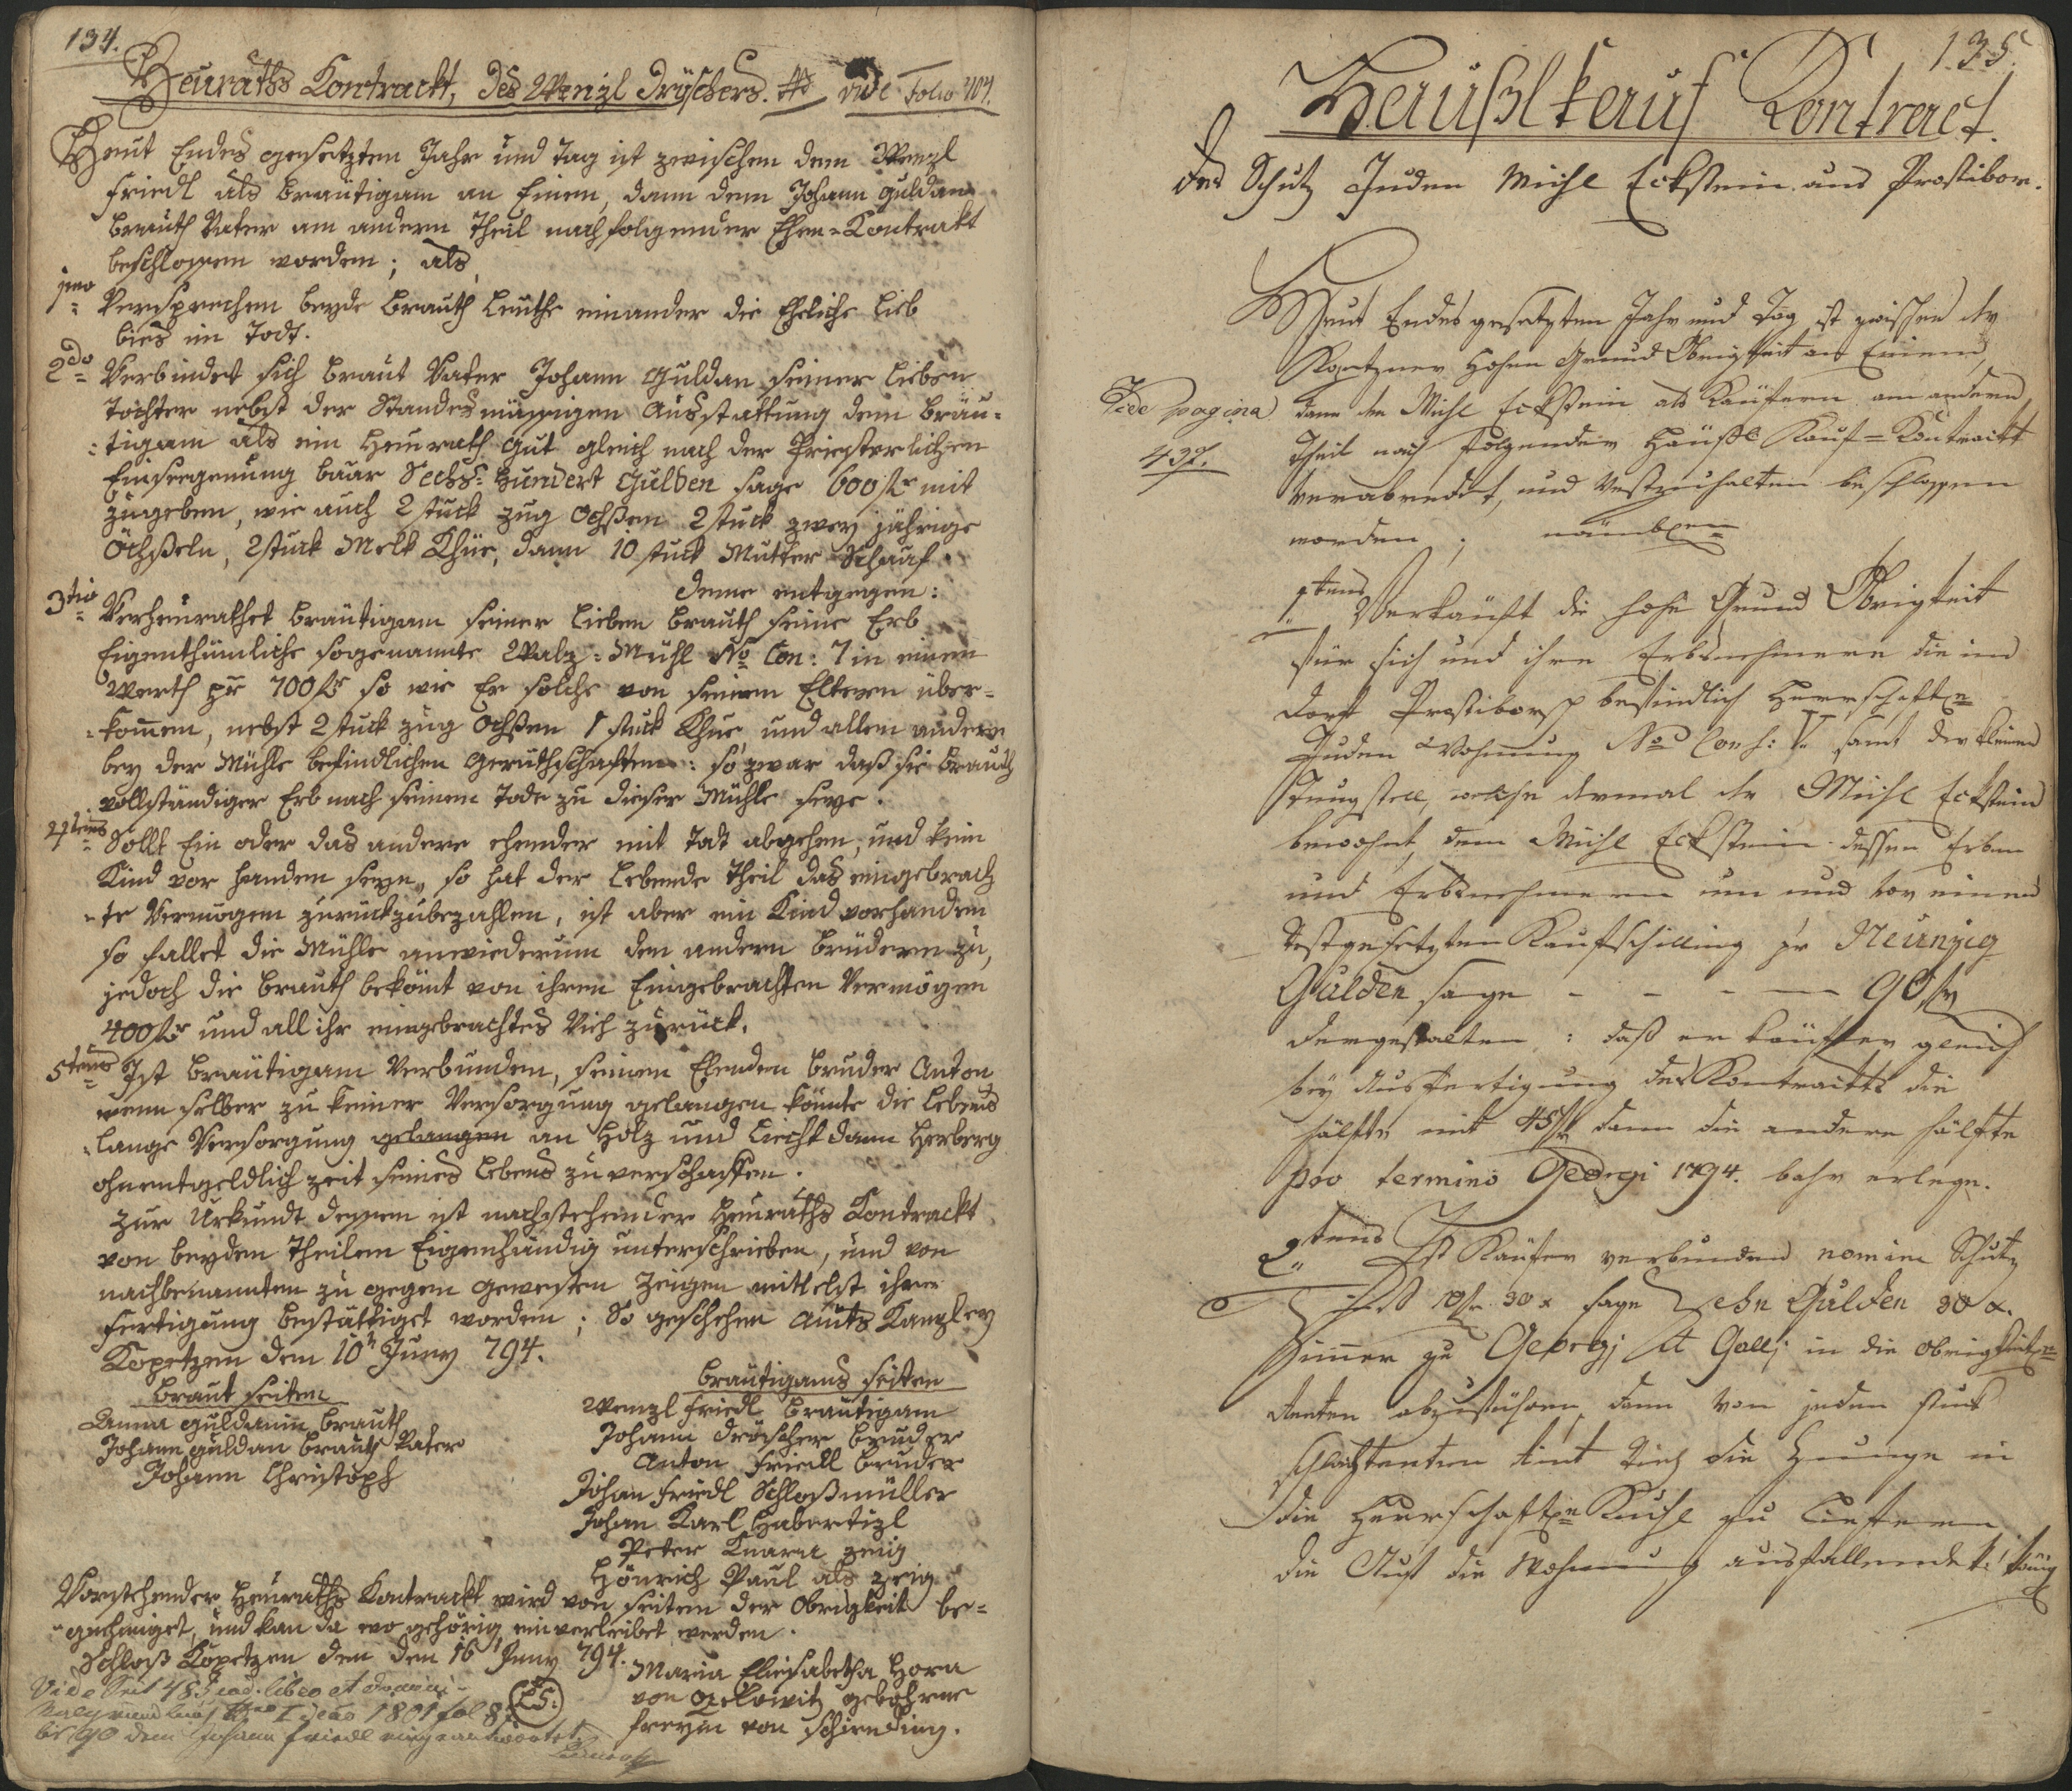 134.
Heuraths Kontrackt, des Wenzl Dröschers. vide Folio 404.
Heut Endes gesetzten Jahr und Tag ist zwischen dem Wenzl
Friedl als Bräutigam an Einen, dann dem Johann Guldan
Brauth Vater am andern Theil nachfolgender Ehen-Kontrakt
beschlossen worden; als,
1mo Versprechen beyde Brauth Leuthe einander die Eheliche Lieb
bies in Todt.
2do Verbindet sich Braut Vater Johann Guldan seiner lieben
Tochter nebst der Standesmässigen Ausstattung dem Bräu-
:tigam als ein Heurath Gut gleich nach der Priesterlichen
Einseegenung baar Sechs-Hundert Gulden sage 600 fr mit
zugeben, wie auch 2 stuck Zug Ochßen 2 stuck zwey jährige
Öchßeln, 2 stuck Melk Khüe, dann 10 stuck Mutter Schaaf.
Deme entgegen:
3tio Verheurathet Bräutigam seiner lieben Brauth seine Erb
Eigenthümliche sogenannte Walz-Mühl No Con: 7 in einen
Werth pr 700 fr so wie Er solche von seinen Eltern über-
-kommen, nebst 2 stuck Zug Ochßen 1 stuck Khue, und allen andern
bey der Mühle befindlichen Geruthschaften: so zwar daß sie Brauth
vollständiger Erb nach seinem Tode zu dieser Mühle seye.
4tens Sollt Ein oder das andere ehender mit Todt abgehen, und kein
Kind vor handen seyn, so hat der Lebende Theil das eingebrach
-te Vermögen zurückzubezahlen, ist aber ein Kind vorhanden
so fallet die Mühle anwiederum den andern Brüdern zu,
jedoch die Brauth bekömt von ihren Eingebrachten Vermögen
400 fr und all ihr eingebrachtes Vieh zurück.
5tens Ist Bräutigam Verbunden, seinen Ehenden Bruder Anton
wenn selber zu keiner Versorgung gelangen könnte die Lebens
-lange Versorgung gelangen an Holz und Liecht dann Herberg
ohnentgeldlich zeit seines Lebens zu verschaffen.
Zur Urkundt dessen ist nachstehender Heuraths Kontrackt
von beyden Theilen Eigenhändig unterschrieben, und von
nachbenannten zu gegen gewesten Zeigen mittelst ihrer
Fertigung bestättiget worden; So geschehen Amts Kanzley
Kopetzen dem 10n Juny 794.
Braut seiten
Anna Guldanin Brauth
Johann Guldan Brauth Vater
Johann Christoph
Bräutigams seiten
Wenzl Friedl Bräutigam
Johann Dröscher Bruder
Anton Friedl Bruder
Johan Friedl Schloßmüller
Johan Karl Habertizl
Peter Knara Zeüg
Hönrich Paul als Zeig
Vorstehender Heuraths Kontrackt wird von seiten der Obrigkeit be-
-gnehmiget, und kan da wo gehörig einverleibet werden.
Schloß Kopetzen den dem 16 Juny 794.
Maria Eliesabetha Hora
von Ozelowitz gebohrne
Freyin von Schirnding.
LS:
Vide Seit 485 ead. libro et
1801 fol 87
bis 90 dem Johann Friedl eingeantwortet.
135.
Haußlkauf Kontract.
des Schutz Juden Michl Eckstein aus Prostibor.
Heut Endes gesetzten Jahr und Tag ist zwischen der
Kopetzner Hohen Grund Obrigkeit an Einem,
dann den Michl Eckstein als Käufern am andern
Theil nach folgender Häußl Kauf-Kontrackt
verabredet, und Vestzuhalten beschlossen
worden; nämblen
Vide pagina
437.
1tens Verkauft die hohe Grund Obrigkeit
für sich und ihre Erbsnehmere die im
Dorf Prostibor befindlich Herrschaftl.
Juden Wohnung No Consc: V. samt der kleinen
welche dermal der Michl Eckstein
bewohnt, dem Michl Eckstein dessen Erben
und Erbsnehmern um und vor einen
Festgesetzten Kaufschilling pr Neunzig
Gulden sage - - - 90 fr
dergestalten: daß er Käuffer gleich
bey Ausfertigung des Kontrackts die
hälfte mit 45 fr dann die andere hälfte
pro termino Georgi 1794. bahr erlege.
2tens Ist Käufer verbunden nomine Schutz
Zinß 10 fr 30 x sage Zehn Gulden 30 x.
Immer zu Georgj et Gallj in die obrigkeitl.
Renten abzuführen, dann von jeden stuck
die Zunge in
die Herrschaftl. Kuchl zu liefern
die Auf die Wohnung ausfallende K: